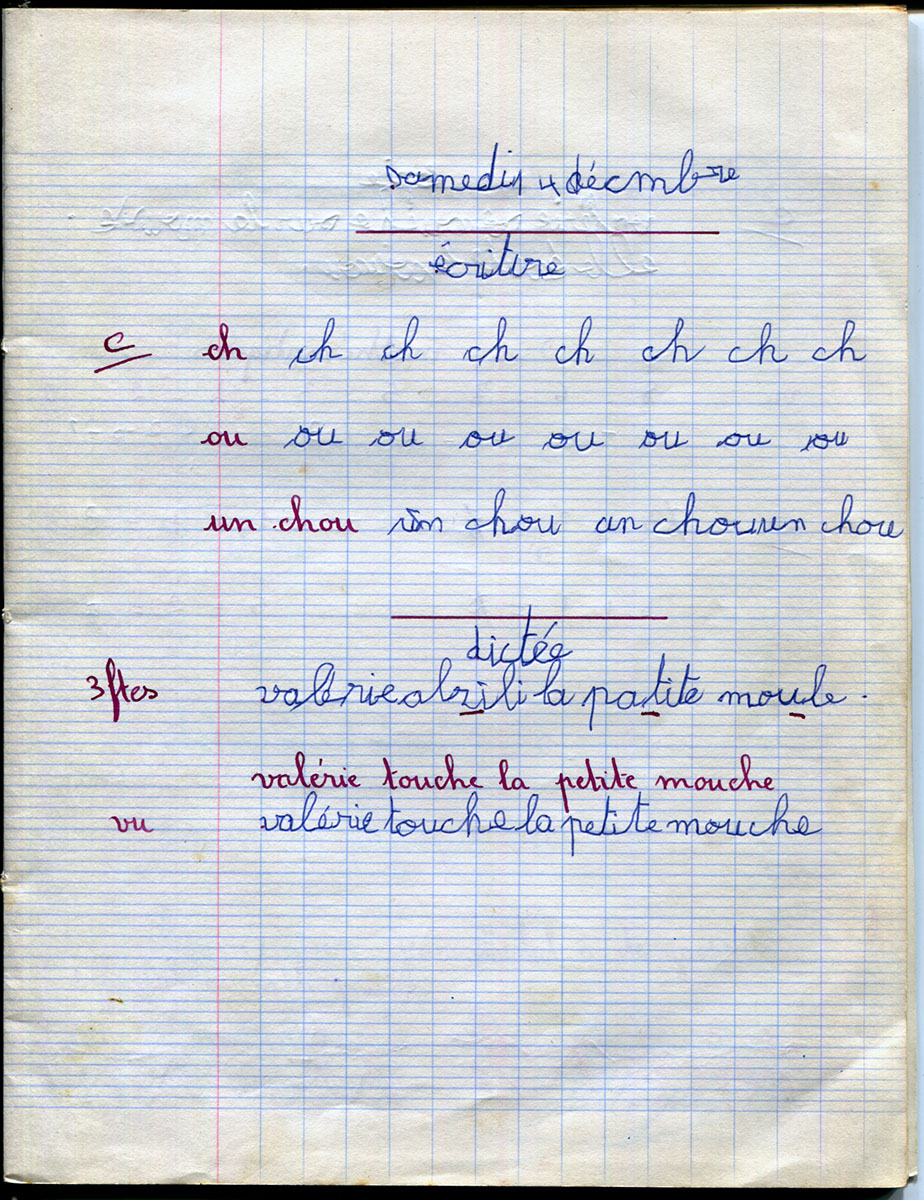 samedi 4 décmbre
écriture
C ch ch ch ch ch ch ch ch
ou ou ou ou ou ou ou ou
un chou un chou un chou un chou
dictée
3 ftes valérie alzili la patite moule.
valérie touche la petite mouche
vu valérie touche la petite mouche